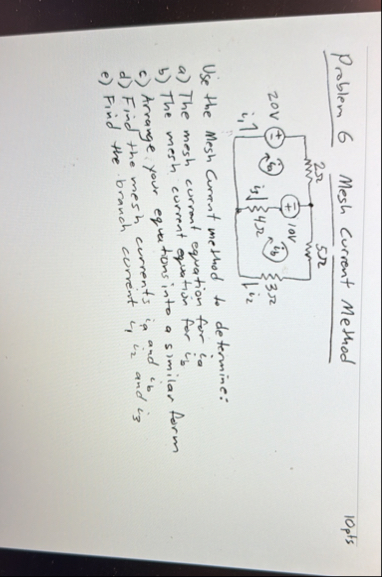 Problem 6 Mesh Current Method 10pts
2Ω 5Ω
20V ± ia ± 10V ib 3Ω
i1 i3 4Ω i2
Use the Mesh Current method to determine:
a) The mesh current equation for ia
b) The mesh current equation for ib
c) Arrange your equations into a similar form
d) Find the mesh currents ia and ib
e) Find the branch current i1 i2 and i3